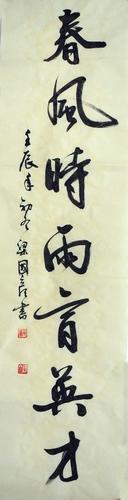 春風時雨育英才
壬辰年初冬梁國書